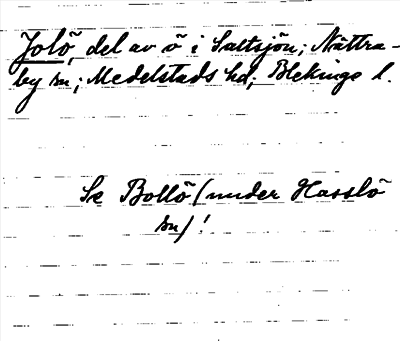 Jolö, del av ö i Saltsjön; Nättra-
by sn; Medelstads hd; Blekinge l.
Se Bollö (under Hasslö
sn)!